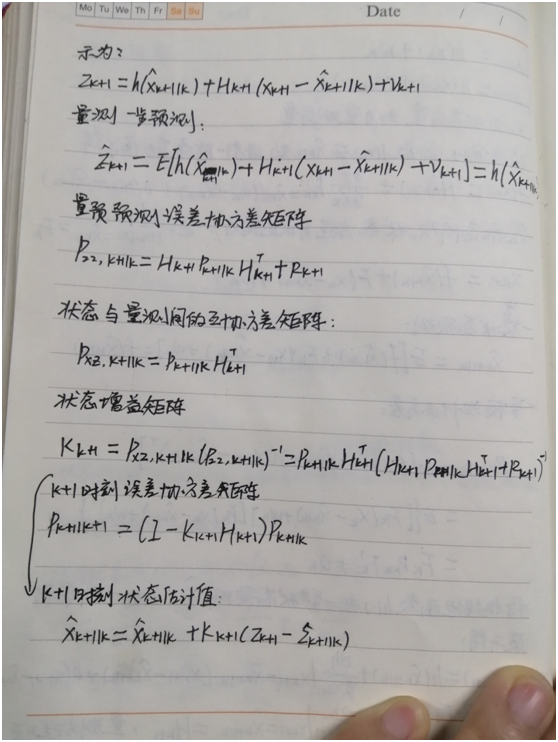 Mo Tu We Th Fr Sa Su
Date / /
示为:
Z_{k+1} = h(x̂_{k+1|k}) + H_{k+1}(x_{k+1} - x̂_{k+1|k}) + v_{k+1}
量测一步预测:
ẑ_{k+1} = E[h(x̂_{k+1|k}) + H_{k+1}(x_{k+1} - x̂_{k+1|k}) + v_{k+1}] = h(x̂_{k+1|k})
量预预测误差协方差矩阵
P_{zz,k+1|k} = H_{k+1} P_{k+1|k} H_{k+1}^T + R_{k+1}
状态与量测间的互协方差矩阵:
P_{xz,k+1|k} = P_{k+1|k} H_{k+1}^T
状态增益矩阵
K_{k+1} = P_{xz,k+1|k}(P_{zz,k+1|k})^{-1} = P_{k+1|k} H_{k+1}^T (H_{k+1} P_{k+1|k} H_{k+1}^T + R_{k+1})^{-1}
k+1时刻误差协方差矩阵
P_{k+1|k+1} = (I - K_{k+1} H_{k+1}) P_{k+1|k}
k+1时刻状态估计值:
x̂_{k+1|k} = x̂_{k+1|k} + K_{k+1}(Z_{k+1} - ẑ_{k+1|k})